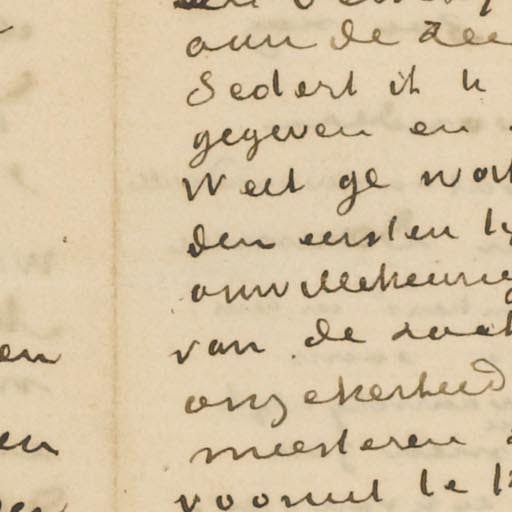 aan de zee
Sedert ik u
gegeven en
Weet ge wat
den eersten ty
onwillekeurig
van de zaak
en
onzekerheid
meesteren
en
vooruit te k